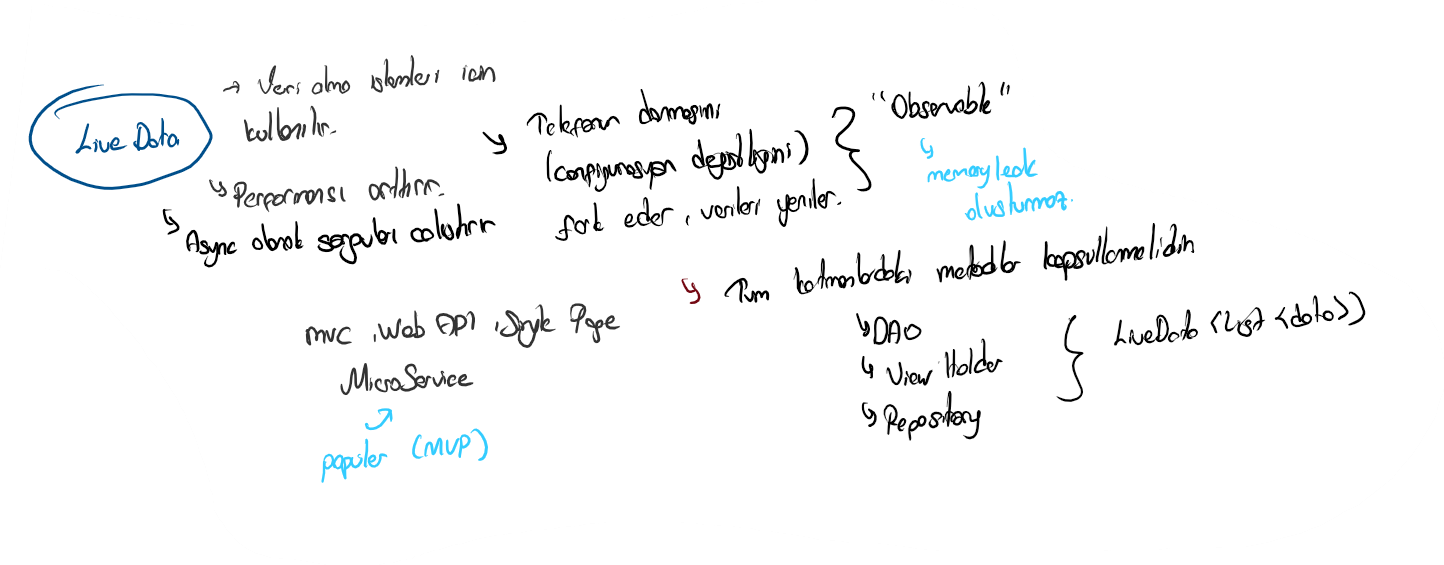 Live Data
→ Veri alma işlemleri icin
kullanılır.
↳ Performansı arttırır.
↳ Async olarak sorguları calıstırır
↳ Telefonun donmasını
(configurasyon degisikligini)
fark eder, verileri yeniler.
"Observable"
↳ memory leak
olusturmaz.
↳ Tum katmanlardaki metodlar kapsullemelidir
↳ DAO
↳ View Holder
↳ Repository
LiveData<List<data>>
mvc, Web API, Single Page
MicroService
populer (MVP)